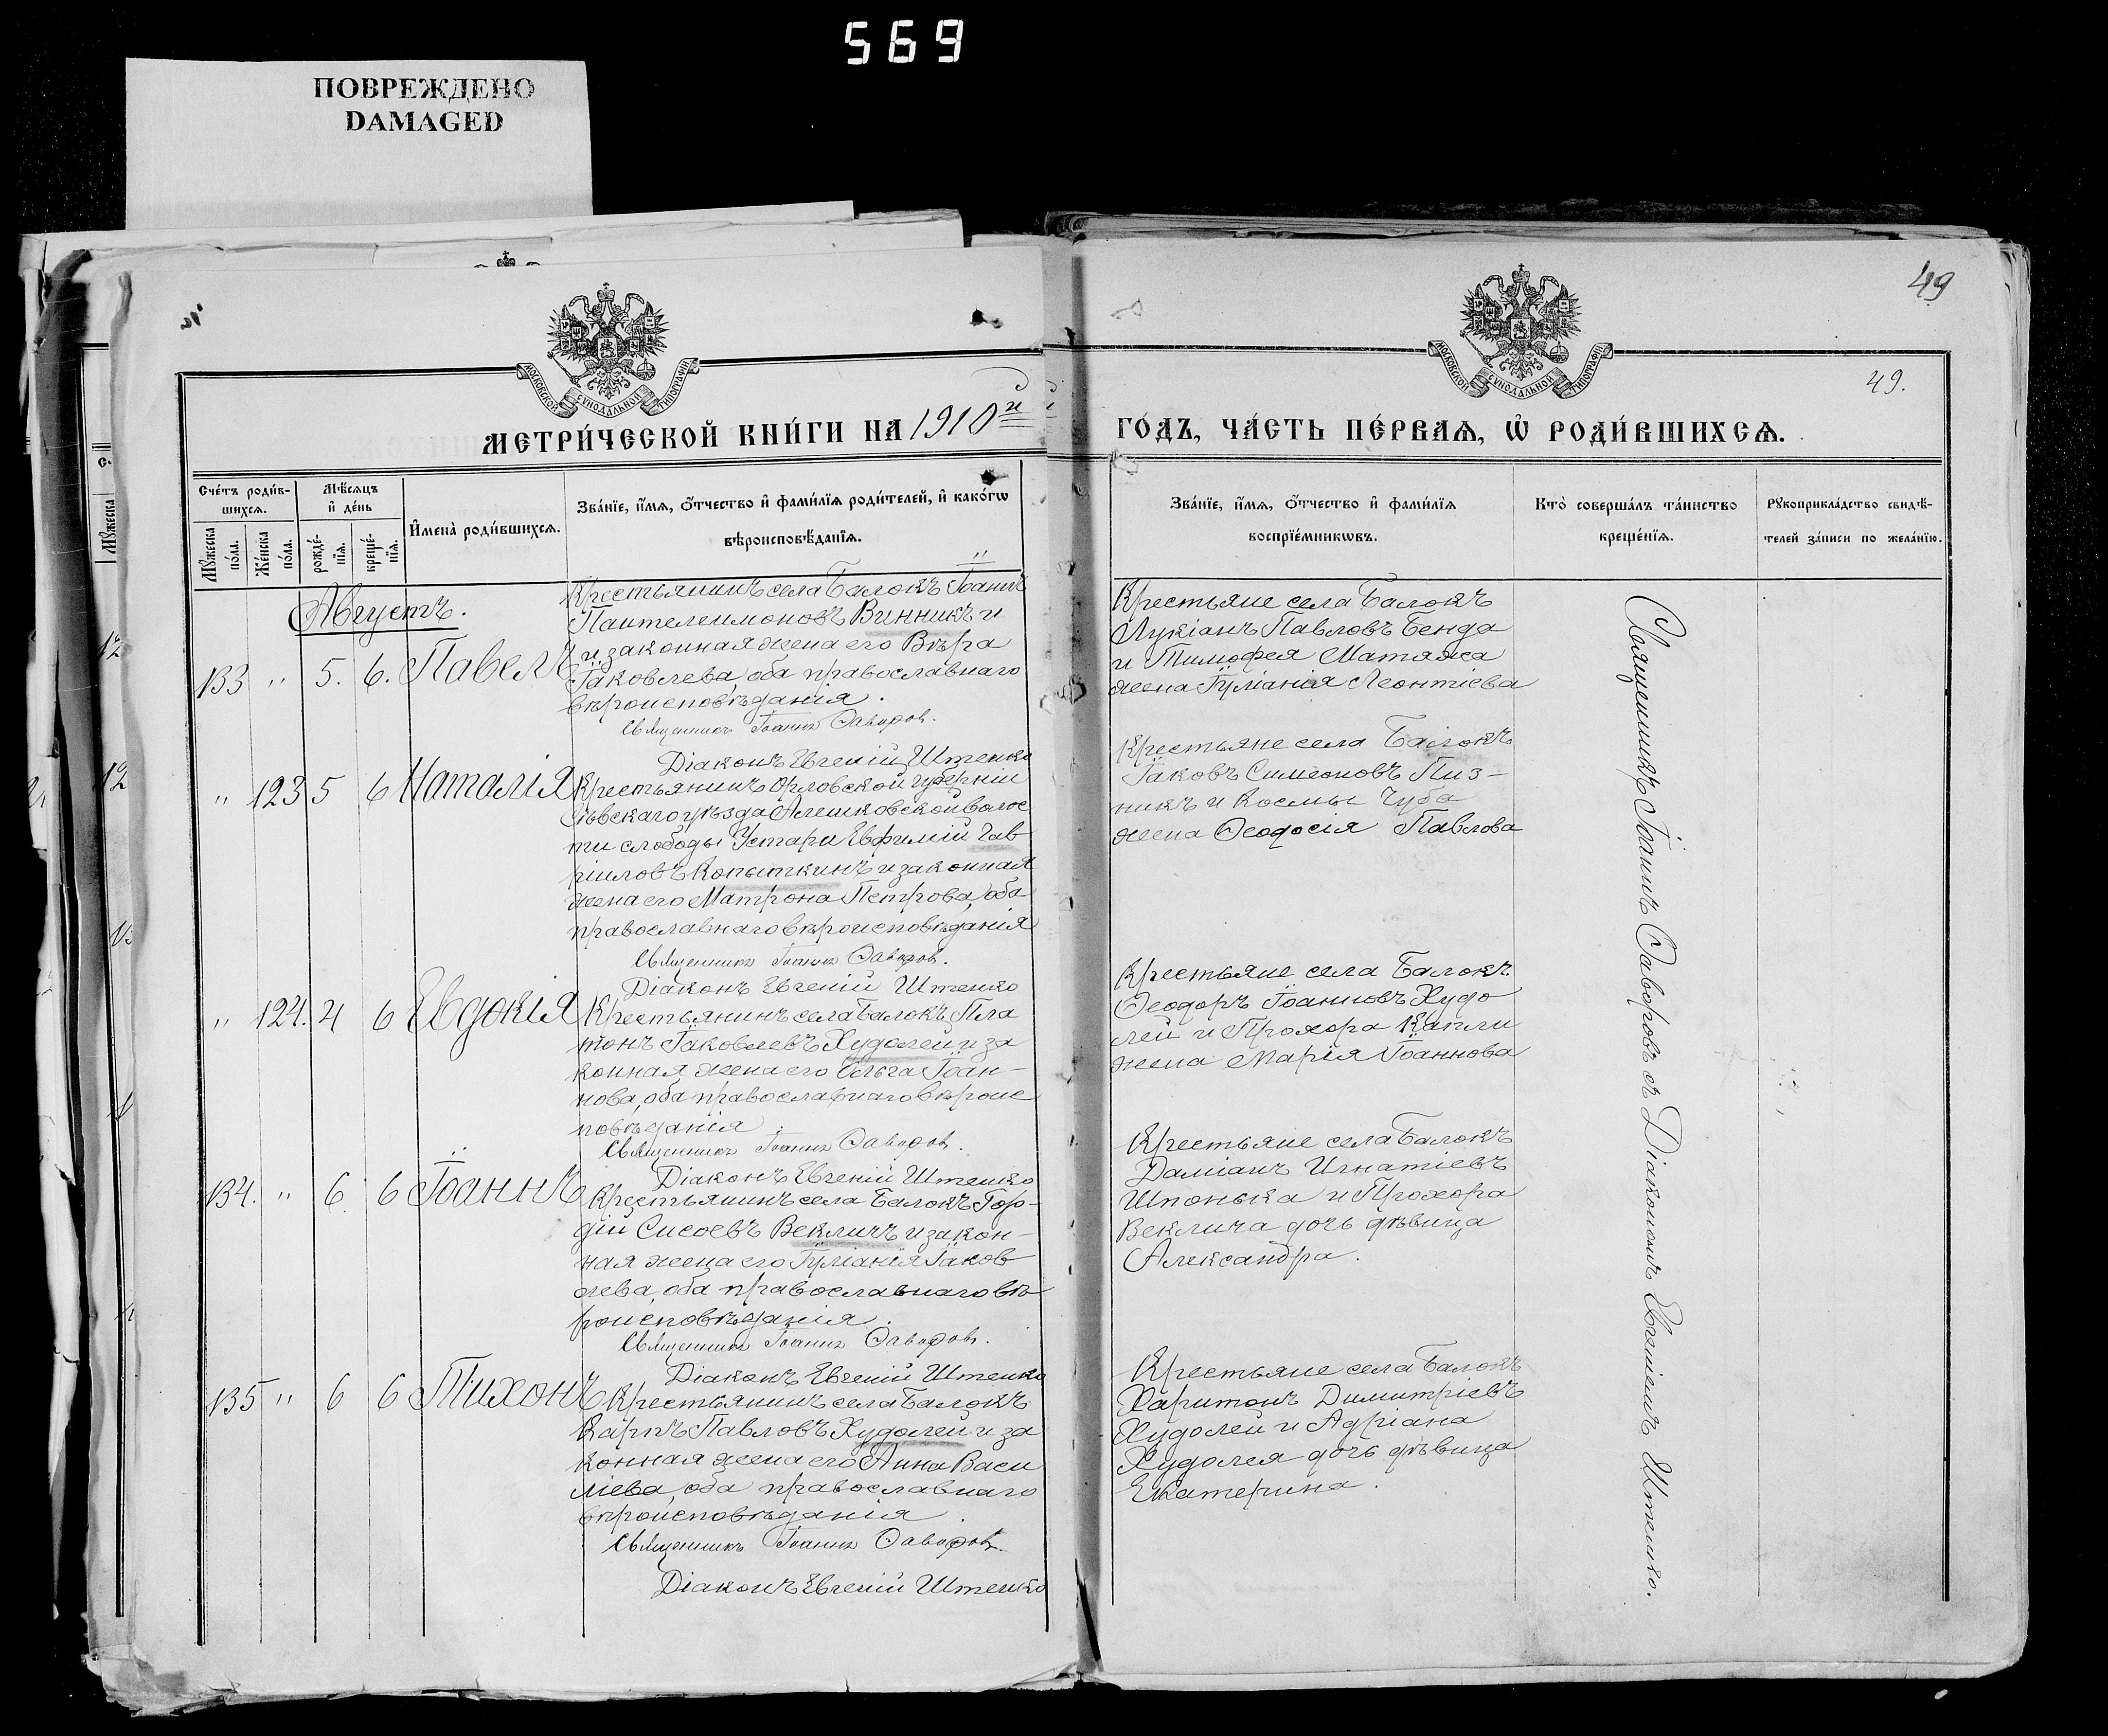 569
ПОВРЕЖДЕНО
DAMAGED
49
49.
МОСКОВСКОЙ СѴНОДАЛЬНОЙ ТИПОГРАФІИ
МОСКОВСКОЙ СѴНОДАЛЬНОЙ ТИПОГРАФІИ
МЕТРИ́ЧЕСКОЙ КНИ́ГИ НА 1910й
ГО́ДЪ, ЧА́СТЬ ПЕ́РВАѦ, Ѡ҆ РОДИ́ВШИХСѦ.
Сче́тъ роди́в-
шихсѧ.
Мѣ́сѧцъ
и҆ де́нь
Мꙋ́жеска
по́ла.
Же́нска
по́ла.
рожде́-
нїѧ.
креще́-
нїѧ.
И҆мена̀ роди́вшихсѧ.
Зва́нїе, и҆́мѧ, ѻ҆́тчество и҆ фами́лїѧ роди́телей, и҆ како́гѡ
вѣроисповѣ́данїѧ.
Зва́нїе, и҆́мѧ, ѻ҆́тчество и҆ фами́лїѧ
воспрїе́мникѡвъ.
Кто̀ соверша́лъ та́инство
креще́нїѧ.
Рꙋкоприкла́дство свидѣ́-
телей за́писи по жела́нїю.
Августъ.
133 " 5. 6. Павелъ
Крестьянинъ села Балокъ Іоаннъ
Пантелеимоновъ Винникъ и
и законная жена его Вѣра
Іаковлева, оба православнаго
вѣроисповѣданія.
Священникъ Іоаннъ
Діаконъ Евгеній Штепко
Крестьяне села Балокъ
Лукіанъ Павловъ Бенда
и Тимофея Матяжа
жена Іуліанія Леонтіева
" 123 5 6 Наталія
Крестьянинъ Орловской губерніи
Сѣвскаго уѣзда Алешковской волос
ти слободы Устари Евфимій Гав
ріиловъ Копыткинъ и законная
жена его Матрона Петрова, оба
православнаго вѣроисповѣданія
Священникъ Іоаннъ
Діаконъ Евгеній Штепко
Крестьяне села Балокъ
Іаковъ Симеоновъ Пиз-
никъ и Космы Чуба
жена Ѳеодосія Павлова
" 124. 4 6 Евдокія
Крестьянинъ села Балокъ Пла
тонъ Іаковлевъ Худолей и за
конная жена его Ольга Іоан-
нова, оба православнаго вѣроис
повѣданія
Священникъ Іоаннъ
Діаконъ Евгеній Штепко
Крестьяне села Балокъ
Ѳеодоръ Іоанновъ Худо
лей и Прохора Капли
жена Марія Іоаннова
134. " 6 6 Іоаннъ
Крестьянинъ села Балокъ Гор-
дій Сисоевъ Векличъ и закон-
ная жена его Іуліанія Іаков
лева, оба православнаго вѣ
роисповѣданія.
Священникъ Іоаннъ
Діаконъ Евгеній Штепко
Крестьяне села Балокъ
Даміанъ Игнатіевъ
Шпонька и Прохора
Веклича дочь дѣвица
Александра.
135 " 6 6 Тихонъ
Крестьянинъ села Балокъ
Карпъ Павловъ Худолей и за
конная жена его Анна Васи
ліева, оба православнаго
вѣроисповѣданія.
Священникъ Іоаннъ
Діаконъ Евгеній Штепко
Крестьяне села Балокъ
Харитонъ Димитріевъ
Худолей и Адріана
Худолея дочь дѣвица
Екатерина.
Священникъ Іоаннъ съ Діакономъ Евгеніемъ Штепко.